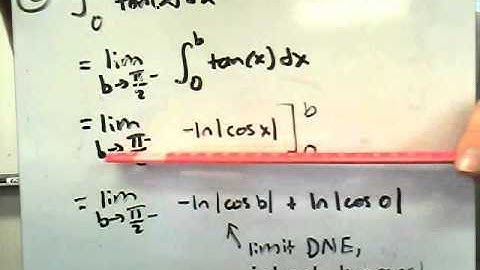 ∫₀ tan(x) dx
= lim b→π/2⁻ ∫₀ᵇ tan(x) dx
= lim b→π/2⁻ -ln|cos x| ]₀ᵇ
= lim b→π/2⁻ -ln|cos b| + ln|cos 0|
limit DNE,